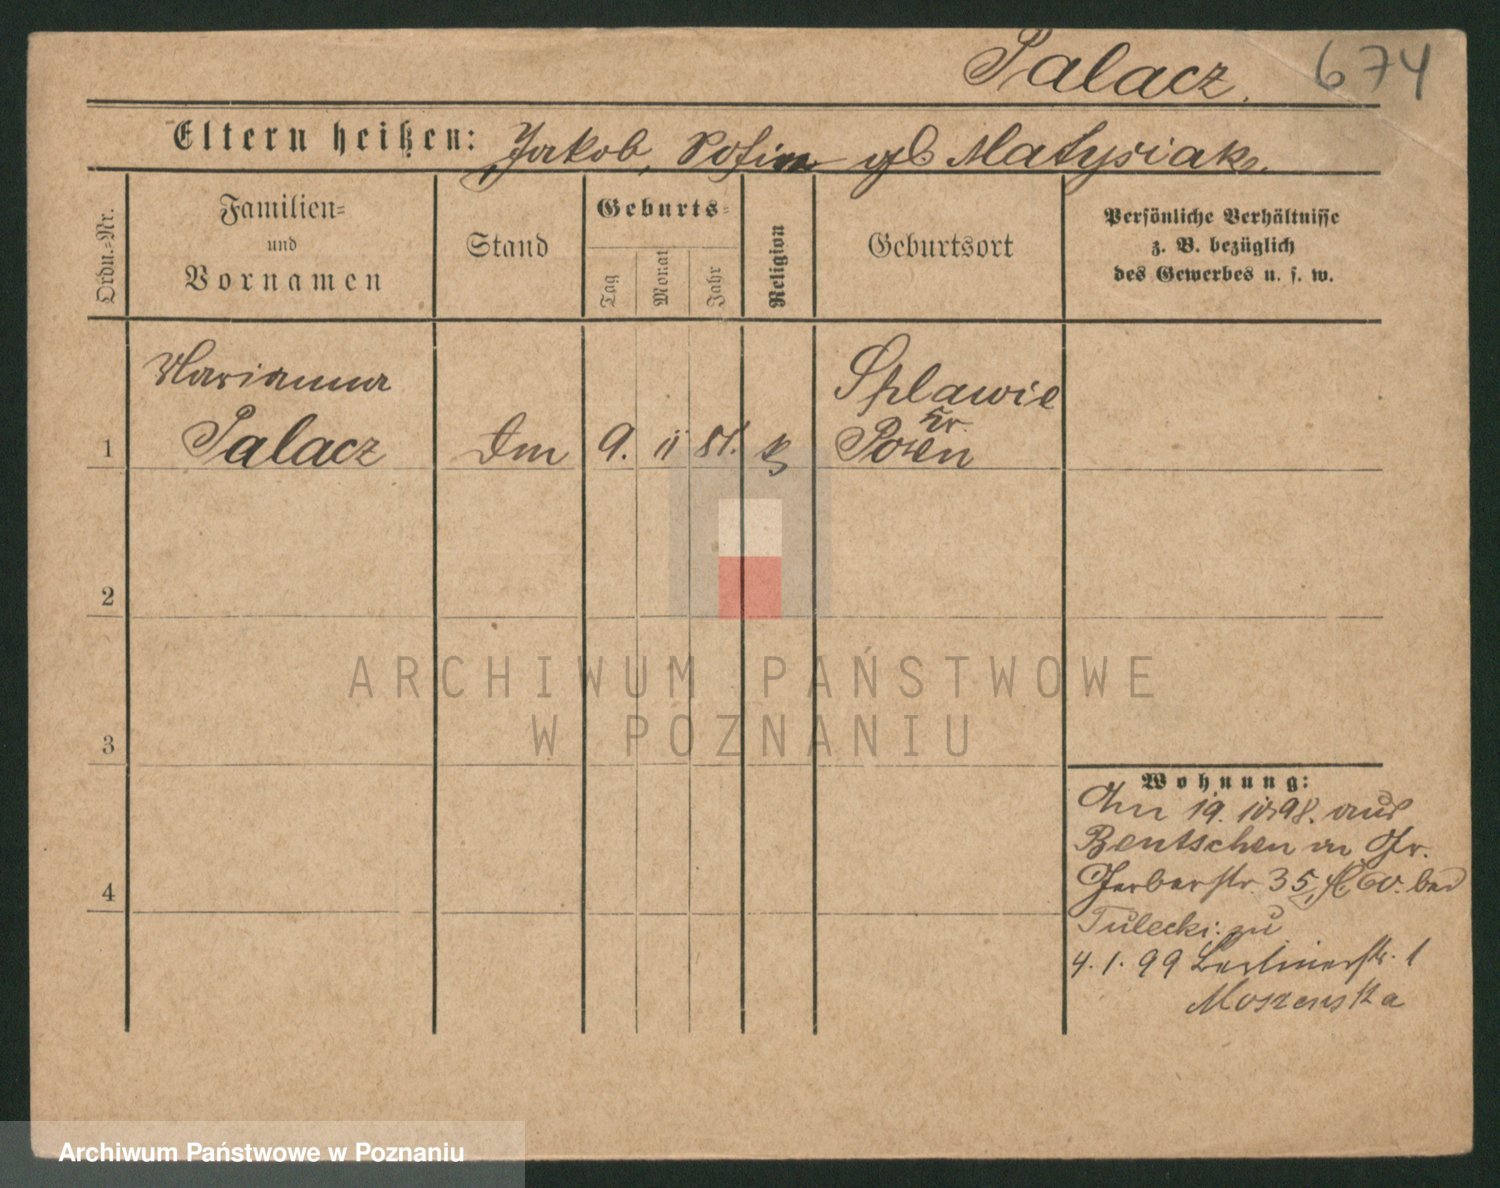 Palacz. 674
Eltern heißen: Jakob, Sofia gb Matysiak.
Ordn.-Nr.
Familien-
und
Vornamen
Stand
Geburts-
Tag
Monat
Jahr
Religion
Geburtsort
Persönliche Verhältnisse
z. B. bezüglich
des Gewerbes u. s. w.
Marianna
Palacz
1
9. 11 81.
Splawie
Kr.
Posen
2
3
4
ARCHIWUM PAŃSTWOWE
W POZNANIU
Wohnung:
19. 10 98. aus
Bentschen in Gr.
Gerberstr. 35, bei
Tulecki. zu
4. 1. 99 Berlinerstr. 1
Moszenska
Archiwum Państwowe w Poznaniu